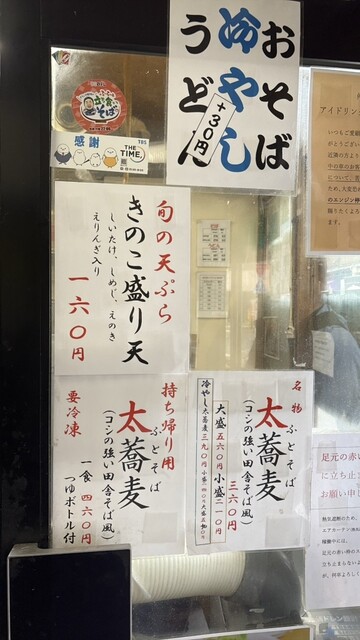 おそば
冷やし
うどん
+30円
感謝
THE TIME,
TBS
旬の天ぷら
きのこ盛り天
しいたけ、しめじ、えのき
えりんぎ入り
一六〇円
名物
ふとそば
太蕎麦
(コシの強い田舎そば風)
三六〇円
大盛五六〇円 小盛二一〇円
持ち帰り用
ふとそば
太蕎麦
(コシの強い田舎そば風)
一食 四六〇円
つゆボトル付
要冷凍
アイドリン
いつもご愛顧
がとうございま
近隣の方より
のエンジン停
ます。
足元の赤い
に立ち止ま
お願い申し